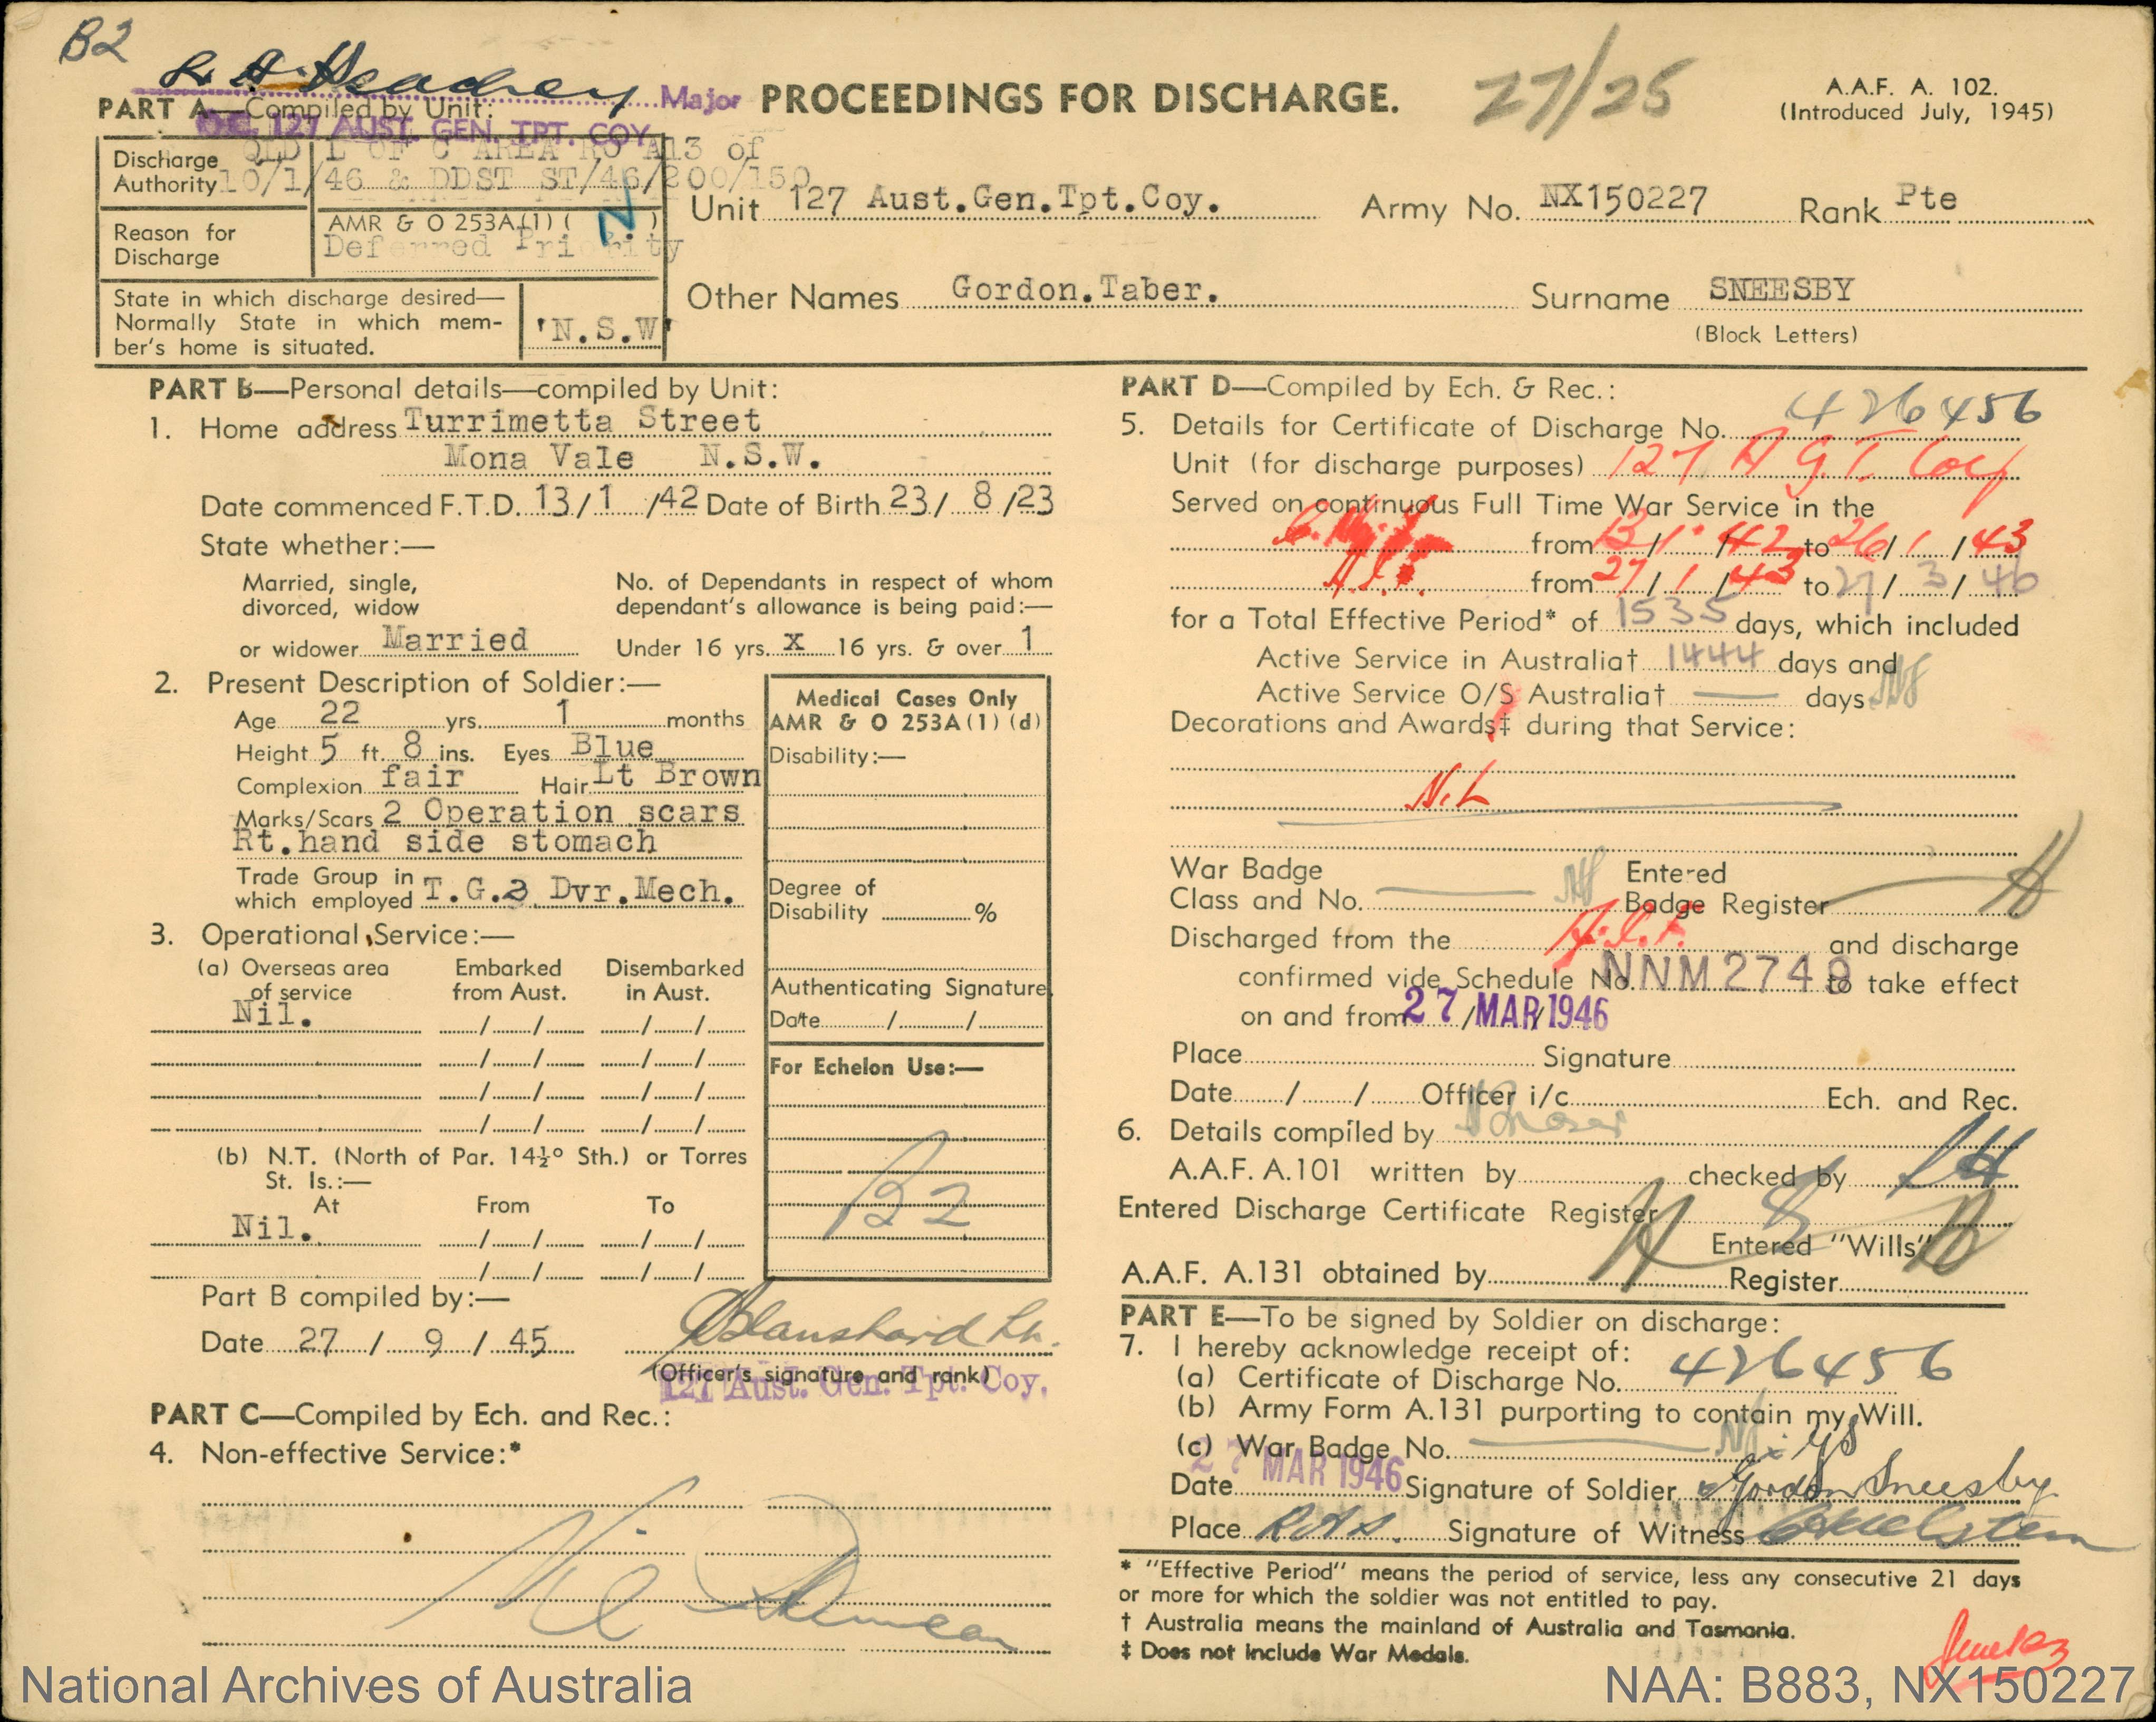 B2
Major
PROCEEDINGS FOR DISCHARGE.
27/25
A.A.F. A. 102.
(Introduced July, 1945)
PART A—Compiled by Unit:
O.C. 127 AUST. GEN. TPT. COY
Discharge Authority QLD L OF C AREA RO A13 of
10/1/46 & DDST ST/46/200/150
Reason for Discharge
AMR & O 253A(1) ( )
Deferred Priority
State in which discharge desired—
Normally State in which mem-
ber's home is situated.
'N.S.W'
Unit 127 Aust.Gen.Tpt.Coy. Army No. NX150227 Rank Pte
Other Names Gordon.Taber. Surname SNEESBY
(Block Letters)
PART B—Personal details—compiled by Unit:
1. Home address Turrimetta Street
Mona Vale N.S.W.
Date commenced F.T.D. 13/1/42 Date of Birth 23/8/23
State whether:—
Married, single,
divorced, widow
or widower Married
No. of Dependants in respect of whom
dependant's allowance is being paid:—
Under 16 yrs. X 16 yrs. & over 1
2. Present Description of Soldier:—
Age 22 yrs. 1 months
Height 5 ft. 8 ins. Eyes Blue
Complexion fair Hair Lt Brown
Marks/Scars 2 Operation scars
Rt.hand side stomach
Trade Group in
which employed T.G.3 Dvr.Mech.
Medical Cases Only
AMR & O 253A(1) (d)
Disability:—
Degree of
Disability %
Authenticating Signature
Date / /
For Echelon Use:—
B2
3. Operational Service:—
(a) Overseas area
of service
Embarked
from Aust.
Disembarked
in Aust.
Nil.
(b) N.T. (North of Par. 14½° Sth.) or Torres
St. Is.:—
At From To
Nil.
Part B compiled by:—
Date 27/9/45
Blanshard Lt.
(Officer's signature and rank)
127 Aust. Gen. Tpt. Coy.
PART C—Compiled by Ech. and Rec.:
4. Non-effective Service:*
PART D—Compiled by Ech. & Rec.:
5. Details for Certificate of Discharge No. 426456
Unit (for discharge purposes) 127 A G.T. Coy
Served on continuous Full Time War Service in the
from 13/1/42 to 26/1/43
A.I.F. from 27/1/43 to 27/3/46
for a Total Effective Period* of 1535 days, which included
Active Service in Australia† 1444 days and
Active Service O/S Australia† — days
Decorations and Awards‡ during that Service:
NiL
War Badge
Class and No.
Entered
Badge Register
Discharged from the A.I.F. and discharge
confirmed vide Schedule No. NNM2749 to take effect
on and from 27 MAR 1946
Place Signature
Date / / Officer i/c Ech. and Rec.
6. Details compiled by
A.A.F. A.101 written by checked by
Entered Discharge Certificate Register
Entered "Wills"
A.A.F. A.131 obtained by Register
PART E—To be signed by Soldier on discharge:
7. I hereby acknowledge receipt of:
(a) Certificate of Discharge No. 426456
(b) Army Form A.131 purporting to contain my Will.
(c) War Badge No.
Date 27 MAR 1946 Signature of Soldier Gordon Sneesby
Place Signature of Witness
* "Effective Period" means the period of service, less any consecutive 21 days
or more for which the soldier was not entitled to pay.
† Australia means the mainland of Australia and Tasmania.
‡ Does not include War Medals.
National Archives of Australia
NAA: B883, NX150227